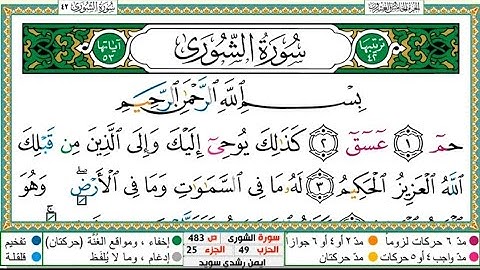 سُورَةُ الشُّورَى ٤٢
الجزء الخامس والعشرون
ترتيبها ٤٢
سُورَةُ الشُّورَى
آياتها ٥٣
بِسْمِ ٱللَّهِ ٱلرَّحْمَٰنِ ٱلرَّحِيمِ
حمٓ ١ عٓسٓقٓ ٢ كَذَٰلِكَ يُوحِىٓ إِلَيْكَ وَإِلَى ٱلَّذِينَ مِن قَبْلِكَ
ٱللَّهُ ٱلْعَزِيزُ ٱلْحَكِيمُ ٣ لَهُۥ مَا فِى ٱلسَّمَٰوَٰتِ وَمَا فِى ٱلْأَرْضِ ۖ وَهُوَ
مدّ ٦ حركات لزوماً مدّ ٢ أو ٤ أو ٦ جوازاً
مدّ واجب ٤ أو ٥ حركات مدّ حركتان
سورة الشورى ص 483
الحزب 49 الجزء 25
أيمن رشدي سويد
إخفاء، ومواقع الغُنَّة (حركتان) تفخيم
إدغام، وما لا يُلفَظ قلقلة